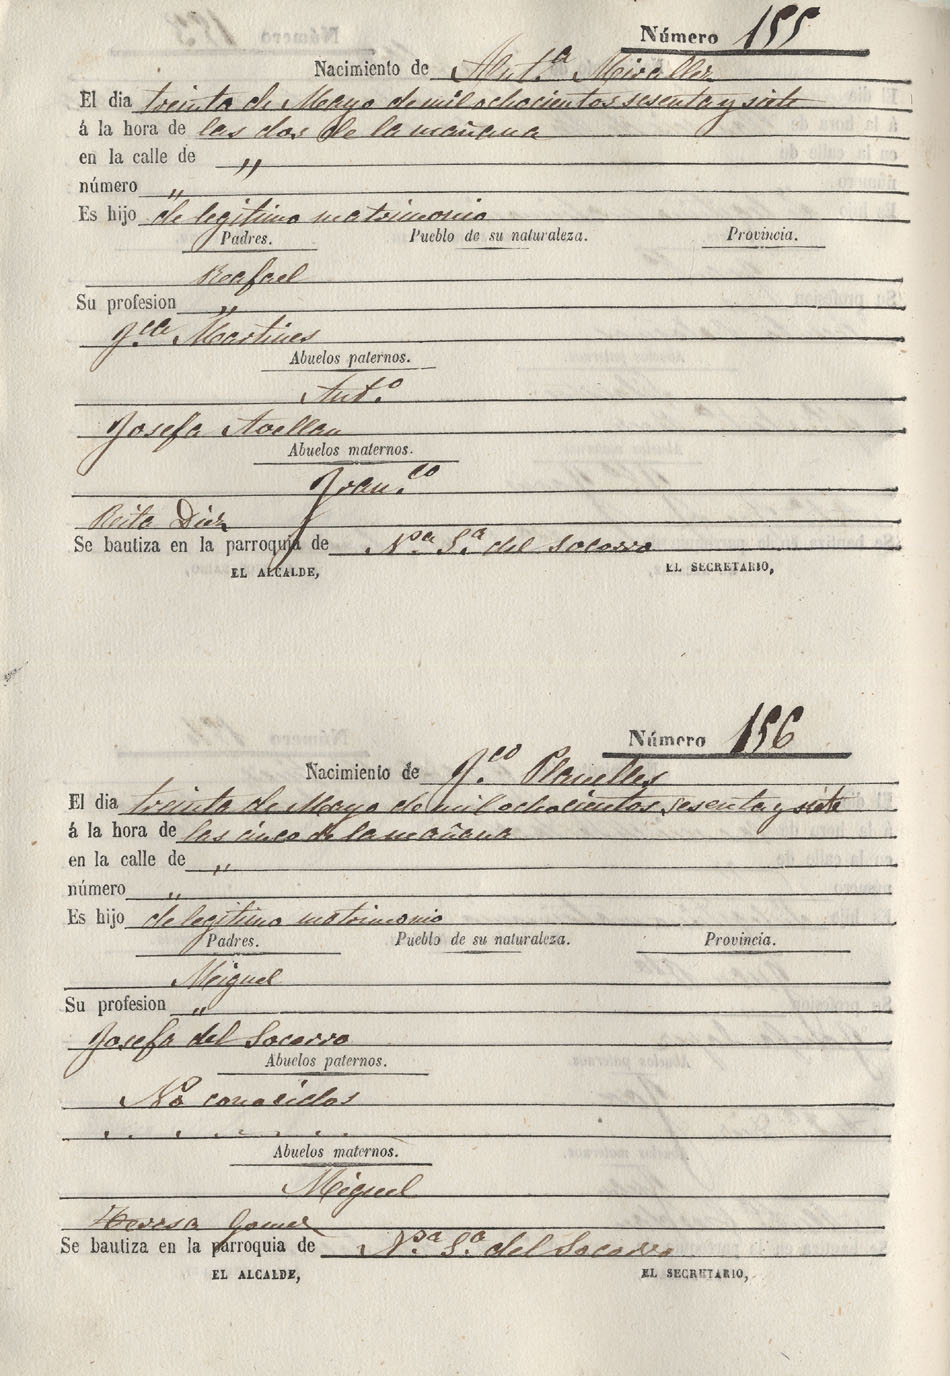 Número 155
Nacimiento de Ant.ª Miralles
El dia treinta de Mayo de mil ochocientos sesenta y siete
á la hora de las dos de la mañana
en la calle de "
número "
Es hijo de legitimo matrimonio
Padres. Pueblo de su naturaleza. Provincia.
Rafael
Su profesion "
Martines
Abuelos paternos.
Ant.º
Josefa Avellan
Abuelos maternos.
Fran.co
Rita Diez
Se bautiza en la parroquia de N.ra S.ra del Socorro
EL ALCALDE, EL SECRETARIO,
Número 156
Nacimiento de F.co Planelles
El dia treinta de Mayo de mil ochocientos sesenta y siete
á la hora de las cinco de la mañana
en la calle de "
número "
Es hijo de legitimo matrimonio
Padres. Pueblo de su naturaleza. Provincia.
Miguel
Su profesion "
Josefa del Socorro
Abuelos paternos.
No conocidos
Abuelos maternos.
Miguel
Teresa Gomez
Se bautiza en la parroquia de N.ra S.ra del Socorro
EL ALCALDE, EL SECRETARIO,